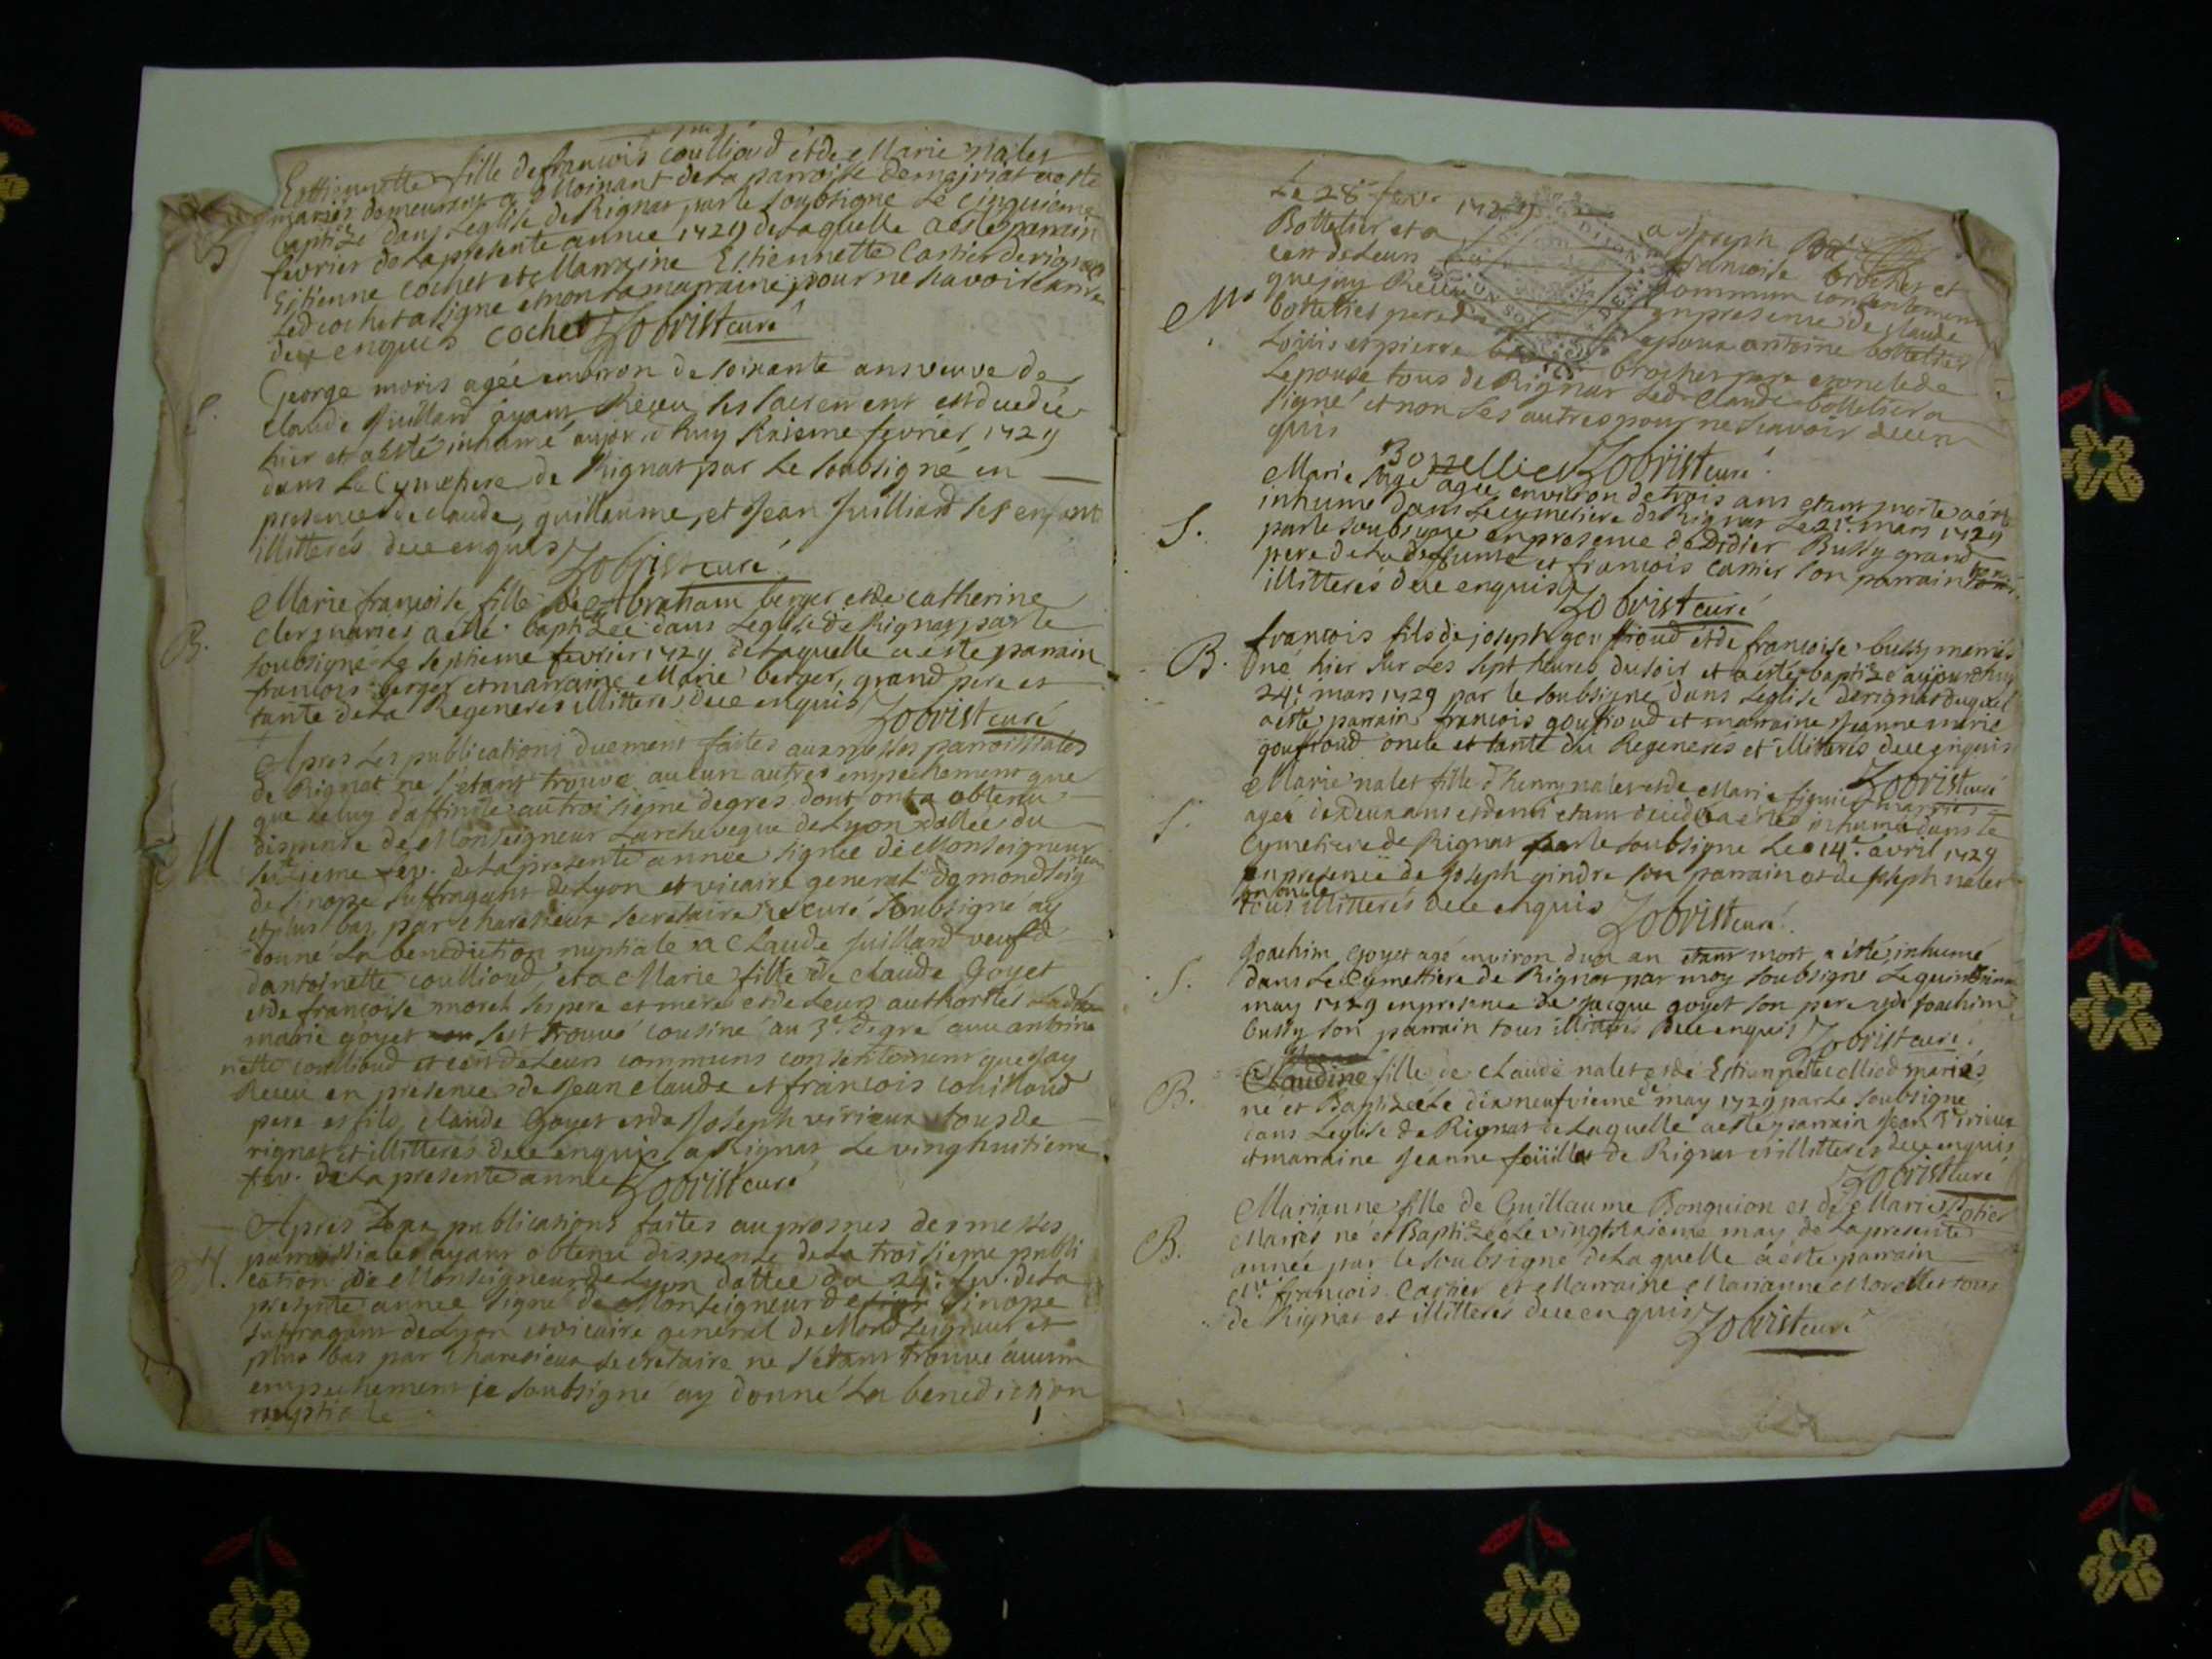 Esttiennette fille de francois coullioud et de Marie nalet
mariés demeurant a Moinant de la parroisse de
baptizé dans Leglise de Rignat par le soubsigné Le cinquieme
B
fevrier de la presente année 1729 de laquelle a esté parrain
Estienne cochet et Marraine Estiennette Cartier de rignat
Led cochet a signé et non la marraine pour ne scavoir
deue enquis cochet Zobrist curé
S.
George moris agée environ de soixante ans veuve de
claude Juillard ayant Receu les sacrement est
hier et a esté inhumé aujourdhuy fevrier 1729
dans Le Cymetiere de Rignat par Le soubsigné en
presence de claude, guillaume, et Jean Juilliard ses enfant
illitterés deue enquis Zobrist curé
Marie francoise fille de Abraham berger et de catherine
B.
clerc mariés a esté baptizée dans Leglise de Rignat par le
soubsigné Le septieme fevrier 1729 de Laquelle a este parrain
francois berger et marraine Marie berger, grand pere et
tante de La Regenerés illitteré deue enquis Zobrist curé
Apres Les publications duement faites aux messes parroissiales
de Rignat ne s'etant trouvé aucun autres empechement que
que celuy d'affinité au troisieme degrés dont ont a obtenu
dispense de Monseigneur Larcheveque de Lyon dattée du
M
fev. de La presente année signée de Monseigneur
de sinope suffragant de Lyon et vicaire general de mondseig
et plus bas par charesieux secretaire Je curé soubsigné ay
donné La benediction nuptiale a Claude Juillard veuf
d'antoinette coullioud, et a Marie fille de claude Goyet
et de francoise morel ses pere et mere et de Leurs authorités
marie goyet s'est trouvé cousine au 3e degré avec antoine
nette coullioud et ce de Leurs communs consentement que Jay
Receu en presence de Jean claude et francois coullioud
pere et fils, claude Goyet et de Joseph virieux tous de
rignat et illitterés deue enquis a Rignat Le vinghuitieme
fev. de La presente année Zobrist curé
Apres publications faites au prosnes des messes
M.
parroissiales ayant obtenu dispense de La troisieme publi
cation de Monseigneur de Lyon dattée du 24e fev. de La
presente année signé de Monseigneur de sinope
suffragant de Lyon et vicaire general de Mondseigneur et
plus bas par charesieux secretaire ne s'etant trouvé aucun
empechement je soubsigné ay donné La benediction
nuptiale
Le 28e fevr 1729 a Joseph
Bottelier et a francoise brochet et
ce de Leurs commun consentement
que jay Receu en presence de claude
M
bottelier pere de Lepoux antoine bottelier
Louis et pierre brochet pere et oncle de
Lepouse tous de Rignat Led Claude bottelier a
signé et non Les autres pour ne scavoir deue en
quis
Bottellier Zobrist curé
Marie agée environ de trois ans etant morte a esté
inhumé dans Le cymetiere de Rignat Le 21e mars 1729
S.
par le soubsigné en presence de Didier Bussy grand
pere de La deffunte et francois cartier son parrain
illitterés deue enquis Zobrist curé
francois fils de joseph gouffioud et de francoise bussy mariés
B.
né hier sur Les sept heures du soir et a esté baptizé aujourdhuy
24e mars 1729 par le soubsigné dans Leglise de rignat duquel
a esté parrain francois gouffioud et marraine Jeanne marie
gouffioud oncle et tante du Regenerés et illiterés deue enquis
Zobrist curé
Marie nalet fille d'henry nalet et de Marie mariés
S.
agée de Deux ans et demi etant decedée a été inhumé dans le
Cymetiere de Rignat par le soubsigné Le 14e avril 1729
en presence de Joseph gindre son parrain et de joseph nalet
son oncle
tous illitterés deue enquis Zobrist curé
Joachim Goyet agé environ d'un an etant mort a été inhumé
S.
dans Le Cymettiere de Rignat par moy soubsigné Le quinzieme
may 1729 en presence de Jacque goyet son pere et de Joachim
bussy son parrain tous illiterés deue enquis Zobrist curé
Claudine fille de claude nalet et de Estiennette colliod mariés
B.
né et Baptizée Le dixneufvieme de may 1729 par Le soubsigné
dans Leglise de Rignat de Laquelle a esté parrain Jean Virieux
et marraine Jeanne foüilla de Rignat et illitterés deue enquis
Zobrist curé
Marianne fille de Guillaume Bonguion et de Marie Potier
B.
Mariés né et Baptizée Le vingtsixieme may de La presente
année par le soubsigné de Laquelle a esté parrain
Sr. francois Cartier et Marraine Marianne Morellet tous
de Rignat et illitterés deue enquis Zobrist curé